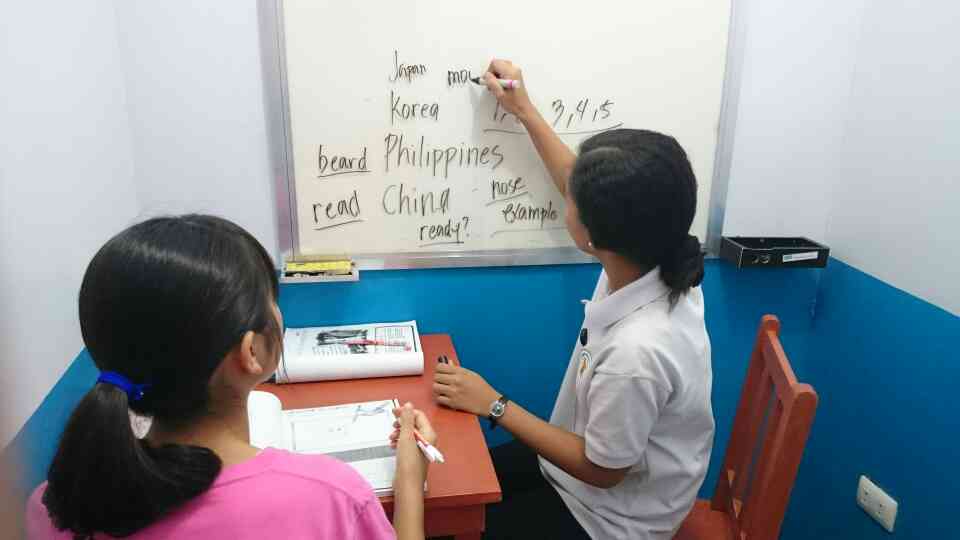 Japan mou
Korea 1, 3, 4, 5
beard Philippines
read China nose
ready? example